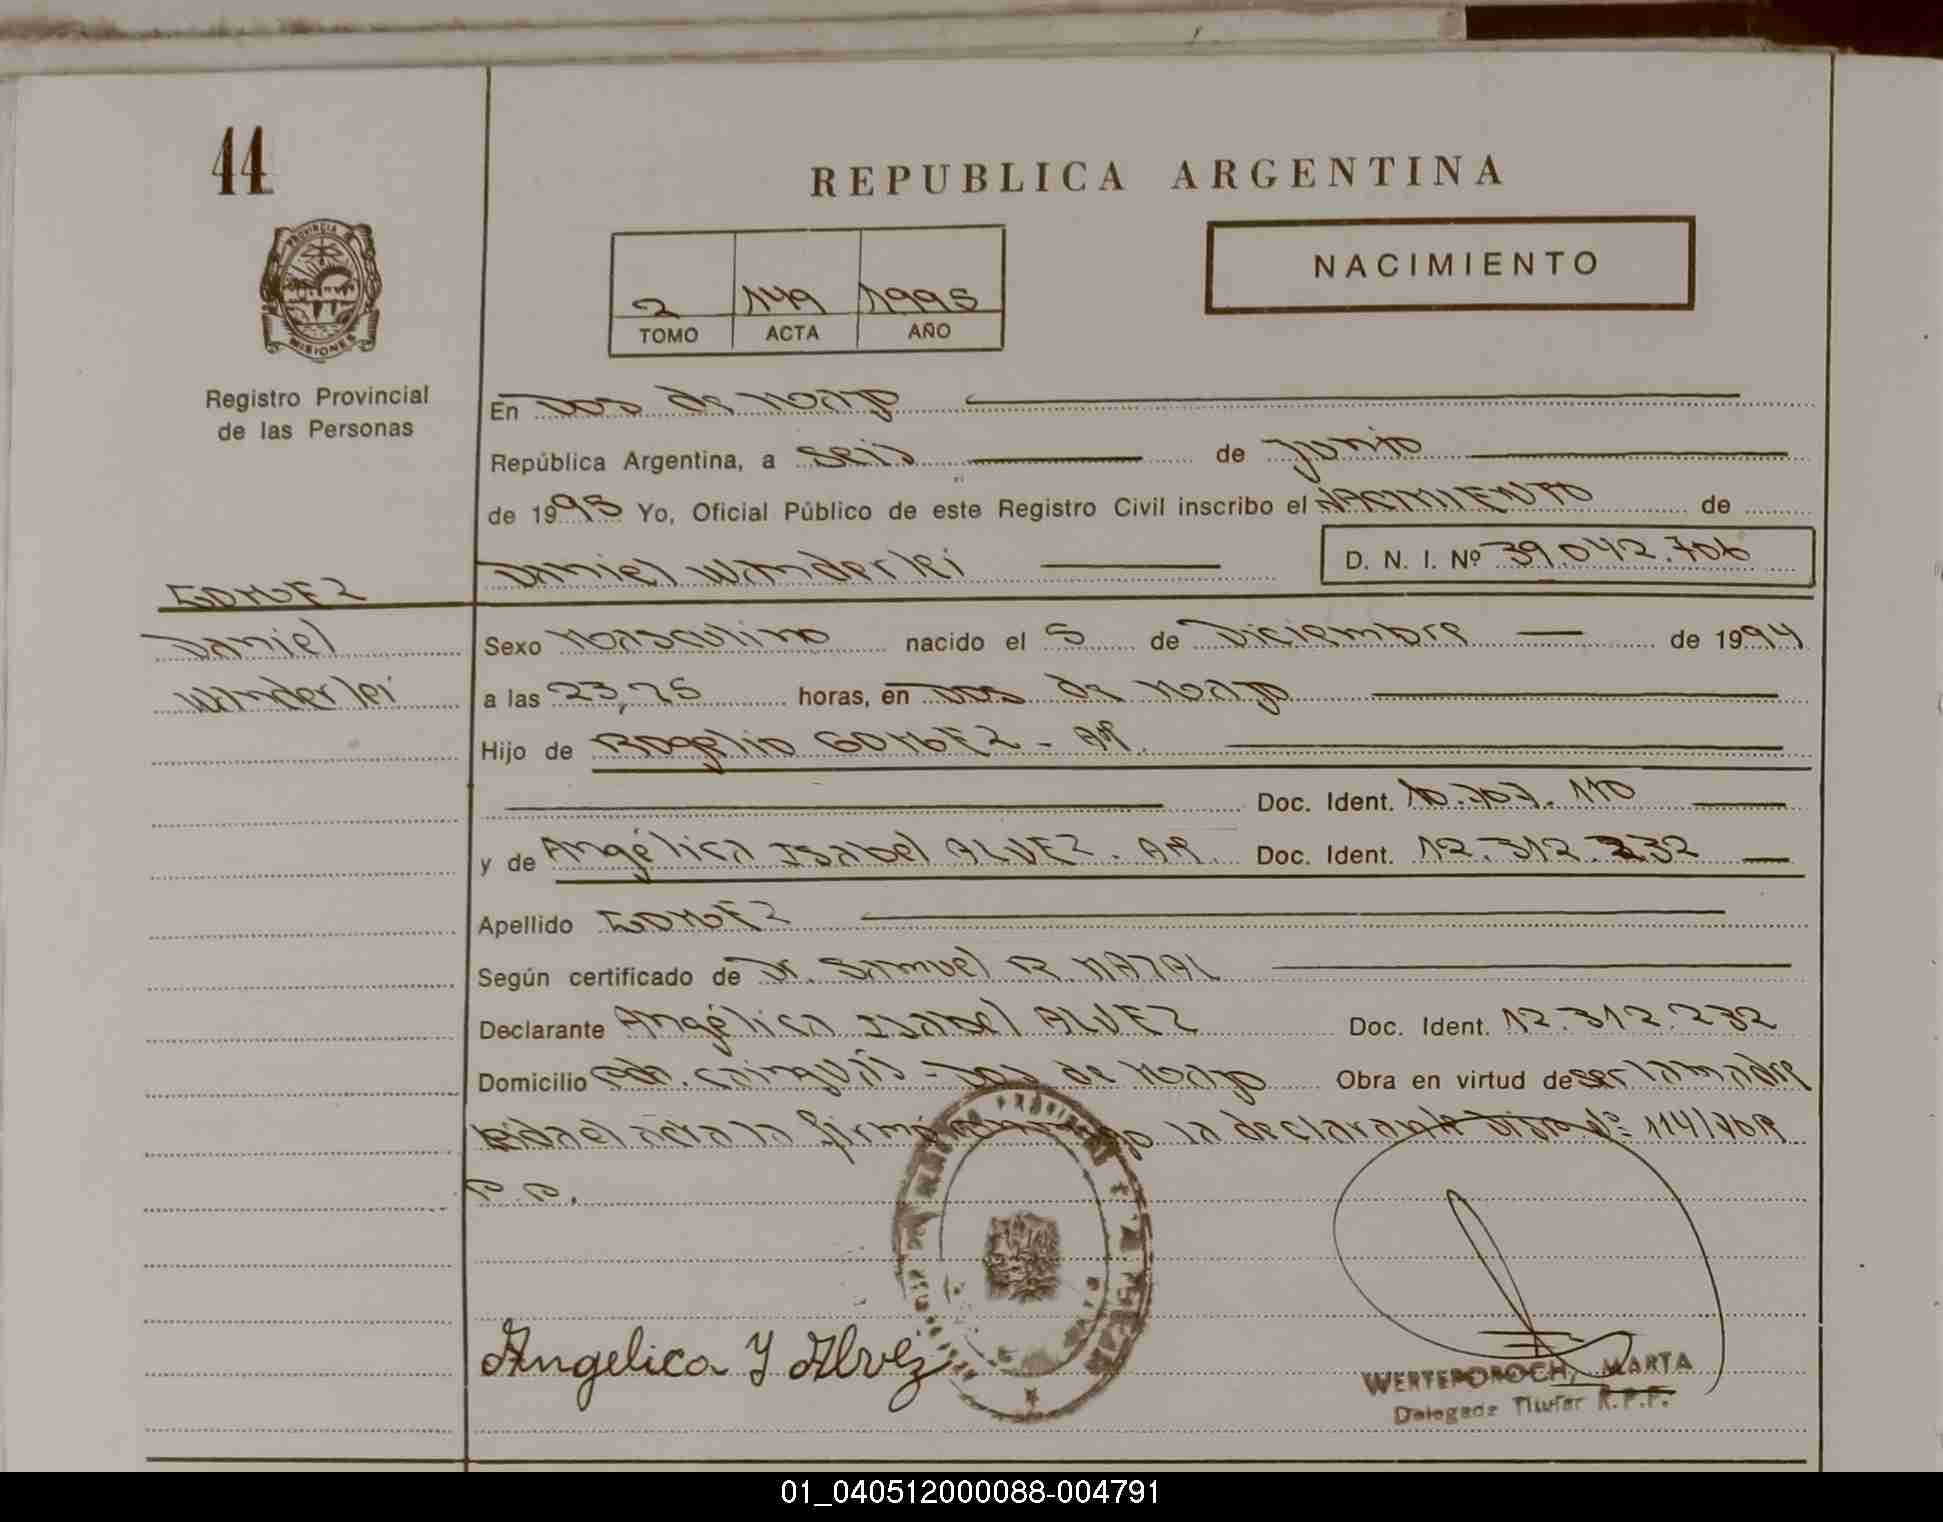 44
REPUBLICA ARGENTINA
PROVINCIA
MISIONES
2 149 1995
TOMO ACTA AÑO
NACIMIENTO
Registro Provincial
de las Personas
En Dos de Mayo
República Argentina, a seis de Junio
de 1995 Yo, Oficial Público de este Registro Civil inscribo el NACIMIENTO de
Daniel Wanderlei D. N. I. Nº 39.042.706
GOMEZ
Daniel
Wanderlei
Sexo Masculino nacido el 5 de Diciembre de 1994
a las 23,25 horas, en Dos de Mayo
Hijo de Rogelio GOMEZ - AR.
Doc. Ident. 10.707.110
y de Angélica Isabel ALVEZ. AR. Doc. Ident. 12.312.232
Apellido GOMEZ
Según certificado de Dr. Samuel R.
Declarante Angélica Isabel ALVEZ Doc. Ident. 12.312.232
Domicilio Cainguás - Dos de Mayo Obra en virtud de ser la madre
leida el acta la firma la declarante 114/
Angelica Y Alvez
WERTEPOROCH, MARTA
Delegada Titular R.P.P.
01_040512000088-004791